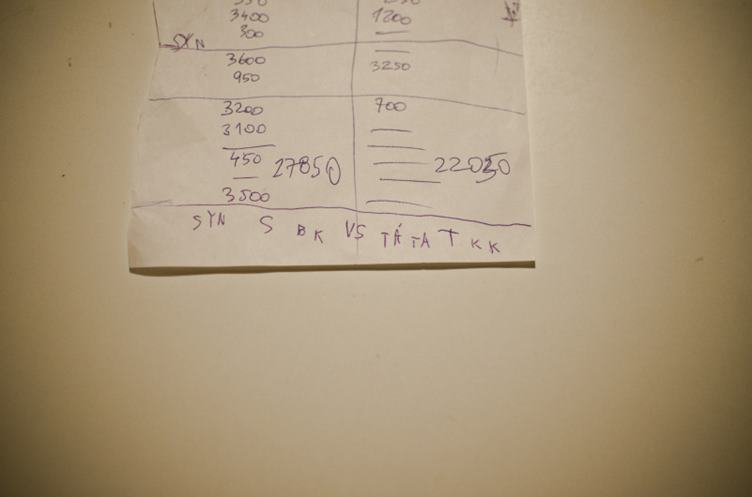 3400 1200
300
SYN
3600 3250
950
3200 700
3100
450 27850 22050
3500
SYN S BK VS TÁTA T KK